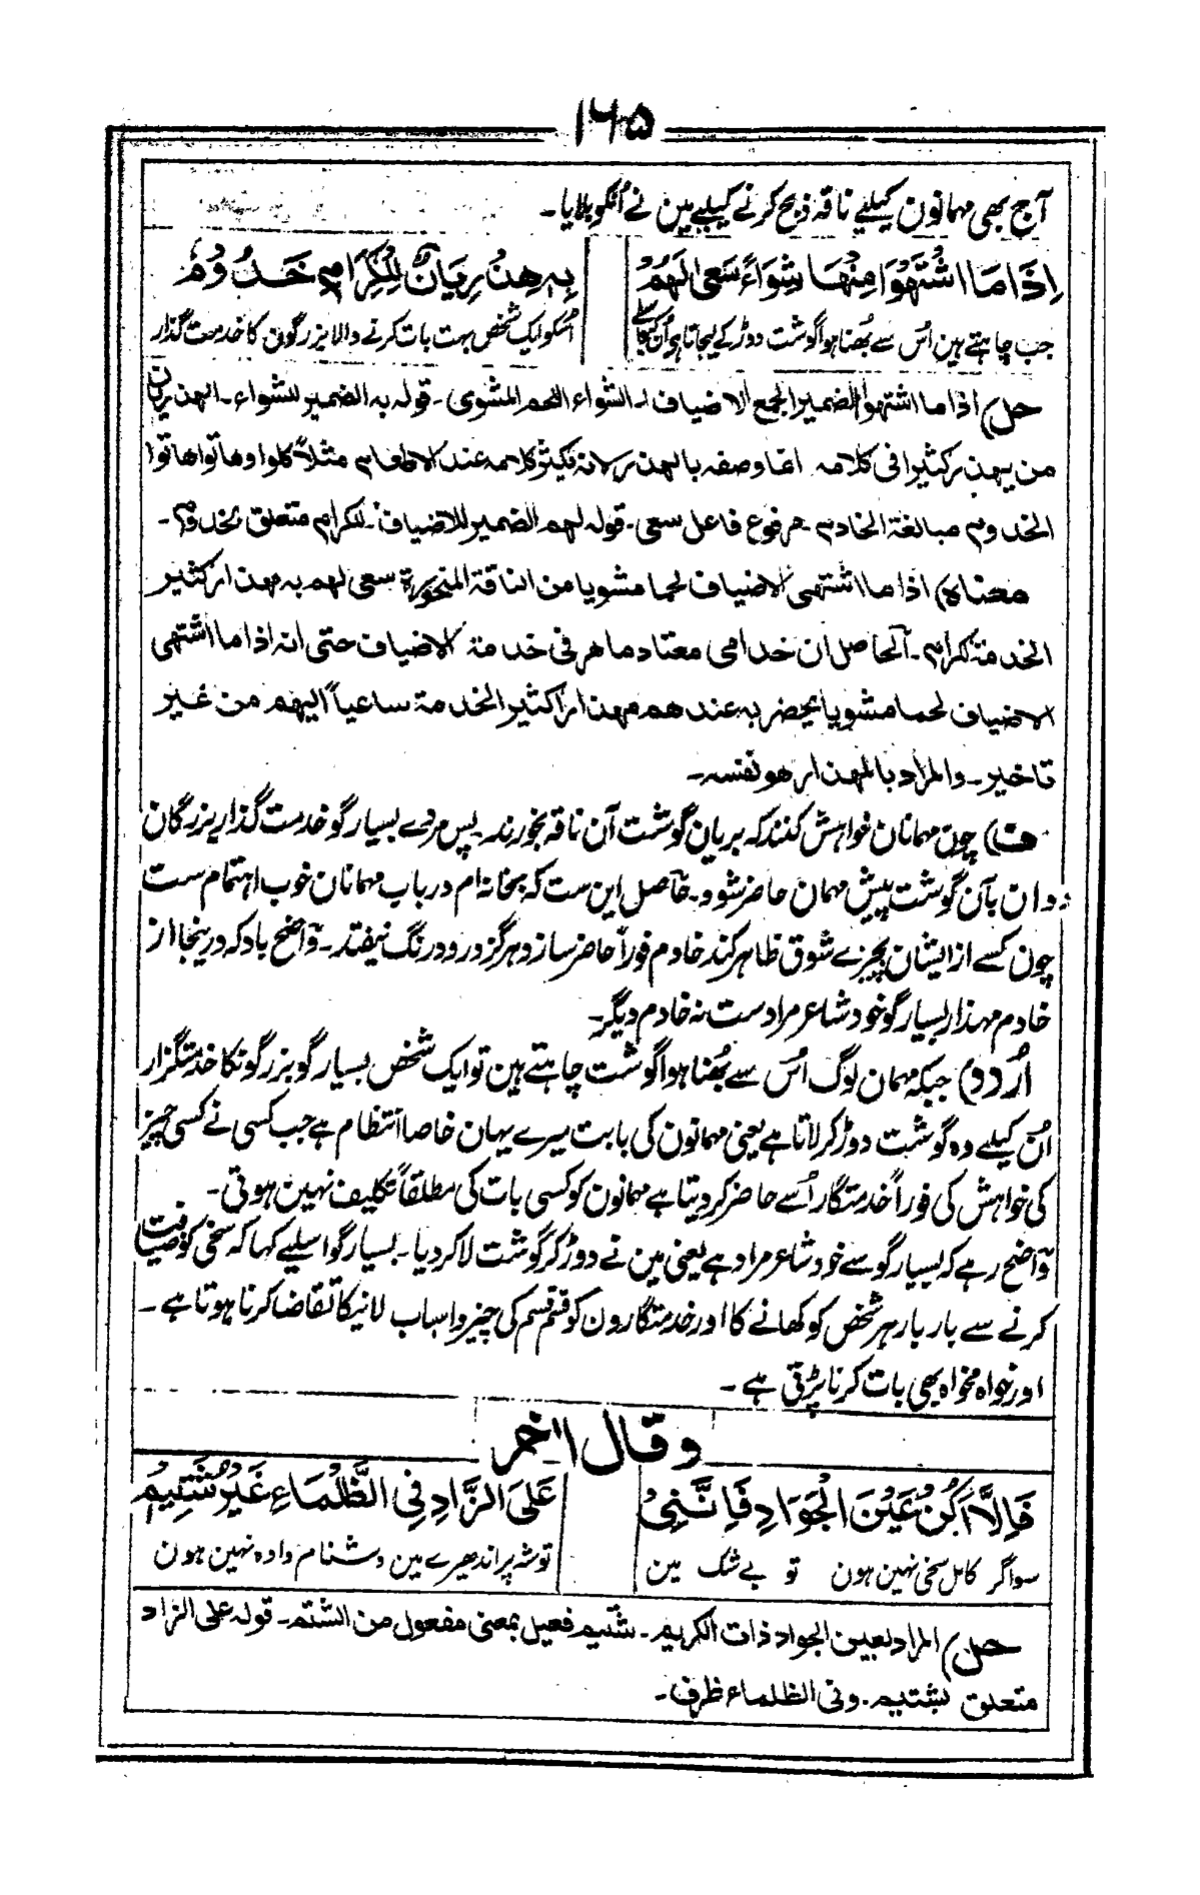 ۱۶۵
آج بھی مہمانون کیلیے ناقہ ذبح کرنے کیلیے مین نے اُنکو بلایا۔
اِذَا مَا اشْتَهَوْا مِنْهَا شِوَاءً سَعٰى لَهُمْ
بِهٖ هِذْرِيَانٌ لِلْكِرَامِ خَدُوْمُ
جب چاہتے ہین اُس سے بُھنا ہوا گوشت دوڑ کے لیجاتا ہے اُن کے لیے
اُسکو ایک شخص بہت بات کرنے والا بزرگون کا خدمت گذار
حل) اذا ما اشتهوا الضمير الجمع الاضياف۔ الشواء اللحم المشوى۔ قوله به الضمير للشواء۔ الهذريان
من يهذر كثيرا فى كلامه انما وصفه بالهذر لانه يكثر كلامه عند الاطعام مثلاً كلوا وهاتوا هاتوا
الخدوم مبالغة الخادم مرفوع فاعل سعى۔ قوله لهم الضمير للاضياف۔ للكرام متعلق بخدوم۔
معناه) اذا ما اشتهى الاضياف لحما مشويا من الناقة المنحورة سعى لهم به مهذار كثير
الخدمة لكرام۔ آلحاصل ان خدامى معتاد ماهر فى خدمة الاضياف حتى انه اذا ما اشتهى
الاضياف لحما مشويا يحضر به عندهم مهذار كثير الخدمة ساعياً اليهم من غير
تاخير۔ والمراد بالمهذار هو نفسه۔
ف) چون مہمانان خواہش کنند کہ بریان گوشت آن ناقہ بخورند۔ پس مردے بسیار گو خدمت گذار بزرگان
دوان بآن گوشت پیش مہمان حاضر شود۔ حاصل این ست کہ بخانہ ام در باب مہمانان خوب اہتمام ست
چون کسے از ایشان بچیزے شوق ظاہر کند خادم فوراً حاضر سازد و ہرگز درو درنگ نیفتد۔ واضح باد کہ درینجا از
خادم مہذار بسیار گو خود شاعر مرادست نہ خادم دیگر۔
اُردو) جبکہ مہمان لوگ اُس سے بُھنا ہوا گوشت چاہتے ہین تو ایک شخص بسیار گو بزرگونکا خدمتگزار
اُن کیلیے وہ گوشت دوڑ کر لاتا ہے یعنی مہمانون کی بابت میرے یہان خاصا انتظام ہے جب کسی نے کسی چیز
کی خواہش کی فوراً خدمتگار اُسے حاضر کر دیتا ہے مہمانون کو کسی بات کی مطلقاً تکلیف نہین ہوتی۔
واضح رہے کہ بسیار گو سے خود شاعر مراد ہے یعنی مین نے دوڑ کر گوشت لا کر دیا۔ بسیار گو اسلیے کہا کہ سخی کو ضیافت
کرنے سے بار بار ہر شخص کو کھانے کا اور خدمتگارون کو قسم قسم کی چیز و اسباب لانیکا تقاضا کرنا ہوتا ہے۔
اور خواہ مخواہ بھی بات کرنا پڑتی ہے۔
وقال اٰخر
فَاِلَّا اَكُنْ عَيْنَ الْجَوَادِ فَاِنَّنِىْ
عَلَى الزَّادِ فِى الظَّلْمَاءِ غَيْرُ شَتِيْمُ
سو اگر کامل سخی نہین ہون تو بے شک مین
توشہ پر اندھیرے مین دشنام دادہ نہین ہون
حل) المراد بعين الجواد ذات الكريم۔ شتيم فعيل بمعنى مفعول من الشتم۔ قوله على الزاد
متعلق بشتيم۔ وفى الظلماء ظرف۔